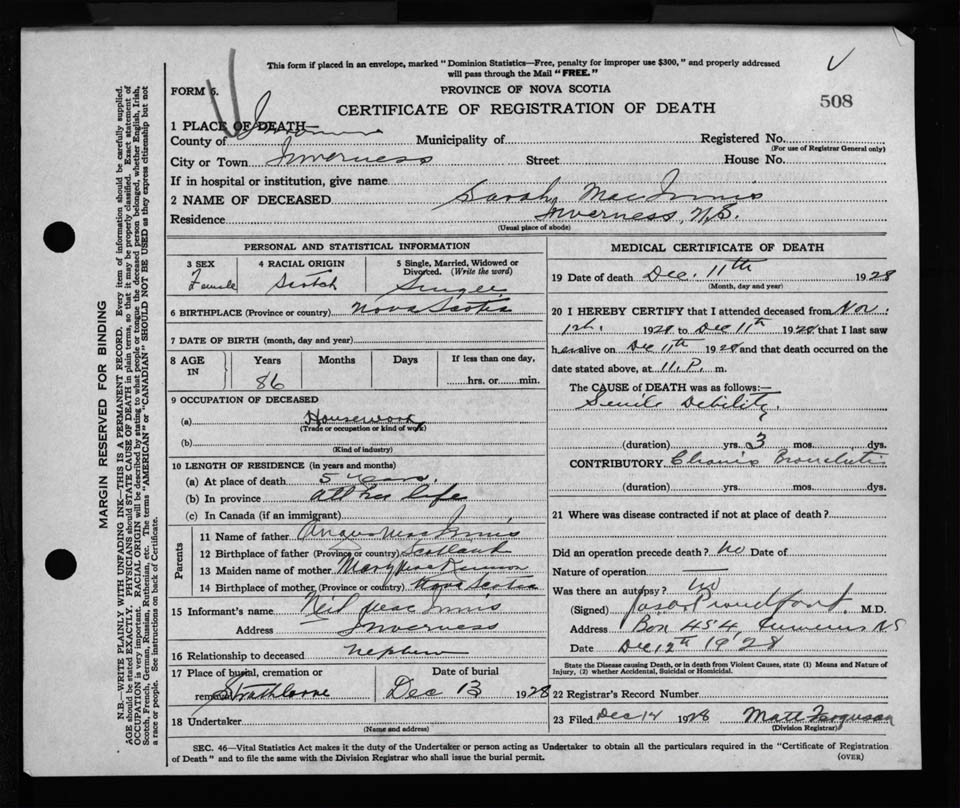 This form if placed in an envelope, marked "Dominion Statistics—Free, penalty for improper use $300," and properly addressed
will pass through the Mail "FREE."
FORM 6.
PROVINCE OF NOVA SCOTIA
CERTIFICATE OF REGISTRATION OF DEATH
508
1 PLACE OF DEATH—
County of Inverness Municipality of Registered No.
(For use of Registrar General only)
City or Town Inverness Street House No.
If in hospital or institution, give name
2 NAME OF DECEASED Sarah MacInnis
Residence Inverness, N.S.
(Usual place of abode)
PERSONAL AND STATISTICAL INFORMATION
3 SEX 4 RACIAL ORIGIN 5 Single, Married, Widowed or
Divorced. (Write the word)
Female Scotch Single
6 BIRTHPLACE (Province or country) Nova Scotia
7 DATE OF BIRTH (month, day and year)
8 AGE IN Years Months Days If less than one day,
86 hrs. or min.
9 OCCUPATION OF DECEASED
(a) Housework
(Trade or occupation or kind of work)
(b)
(Kind of industry)
10 LENGTH OF RESIDENCE (in years and months)
(a) At place of death 5 years
(b) In province all her life
(c) In Canada (if an immigrant)
Parents
11 Name of father Angus MacInnis
12 Birthplace of father (Province or country) Scotland
13 Maiden name of mother Mary MacKinnon
14 Birthplace of mother (Province or country) Nova Scotia
15 Informant's name Neil MacInnis
Address Inverness
16 Relationship to deceased nephew
17 Place of burial, cremation or Date of burial
removal Strathlorne Dec 13 1928
18 Undertaker
(Name and address)
MEDICAL CERTIFICATE OF DEATH
19 Date of death Dec. 11th 1928
(Month, day and year)
20 I HEREBY CERTIFY that I attended deceased from Nov.
1st. 1928 to Dec 11th 1928 that I last saw
her alive on Dec 11th 1928 and that death occurred on the
date stated above, at 11.P. m.
The CAUSE of DEATH was as follows:—
Senile Debility
(duration) yrs. 3 mos. dys.
CONTRIBUTORY Chronic Bronchitis
(duration) yrs. mos. dys.
21 Where was disease contracted if not at place of death?
Did an operation precede death? no Date of
Nature of operation
Was there an autopsy? no
(Signed) Proudfoot M.D.
Address Box 454, Inverness NS
Date Dec 12th 1928
State the Disease causing Death, or in death from Violent Causes, state (1) Means and Nature of
Injury, (2) whether Accidental, Suicidal or Homicidal.
22 Registrar's Record Number
23 Filed Dec 14 1928 Matt Ferguson
(Division Registrar)
SEC. 46—Vital Statistics Act makes it the duty of the Undertaker or person acting as Undertaker to obtain all the particulars required in the "Certificate of Registration
of Death" and to file the same with the Division Registrar who shall issue the burial permit.
(OVER)
MARGIN RESERVED FOR BINDING
N.B.—WRITE PLAINLY WITH UNFADING INK—THIS IS A PERMANENT RECORD. Every item of information should be carefully supplied.
AGE should be stated EXACTLY. PHYSICIANS should STATE CAUSE OF DEATH in plain terms, so that it may be properly classified. Exact statement of
OCCUPATION is very important. RACIAL ORIGIN will be described by stating to what people or tongue the deceased person belonged, whether English, Irish,
Scotch, French, German, Russian, Ruthenian, etc. The terms "AMERICAN" or "CANADIAN" SHOULD NOT BE USED as they express citizenship but not
a race or people. See instructions on back of Certificate.